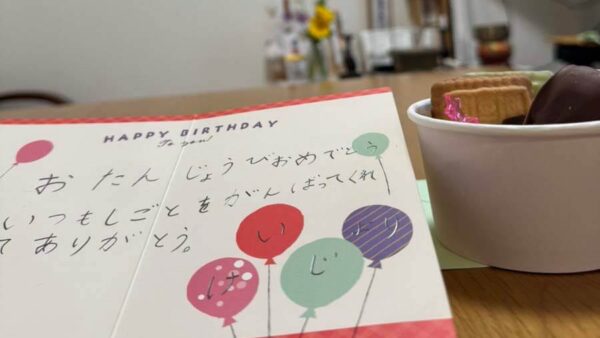 HAPPY BIRTHDAY
To you!
おたんじょうびおめでとう
いつもしごとをがんばってくれ
てありがとう。
けいじより